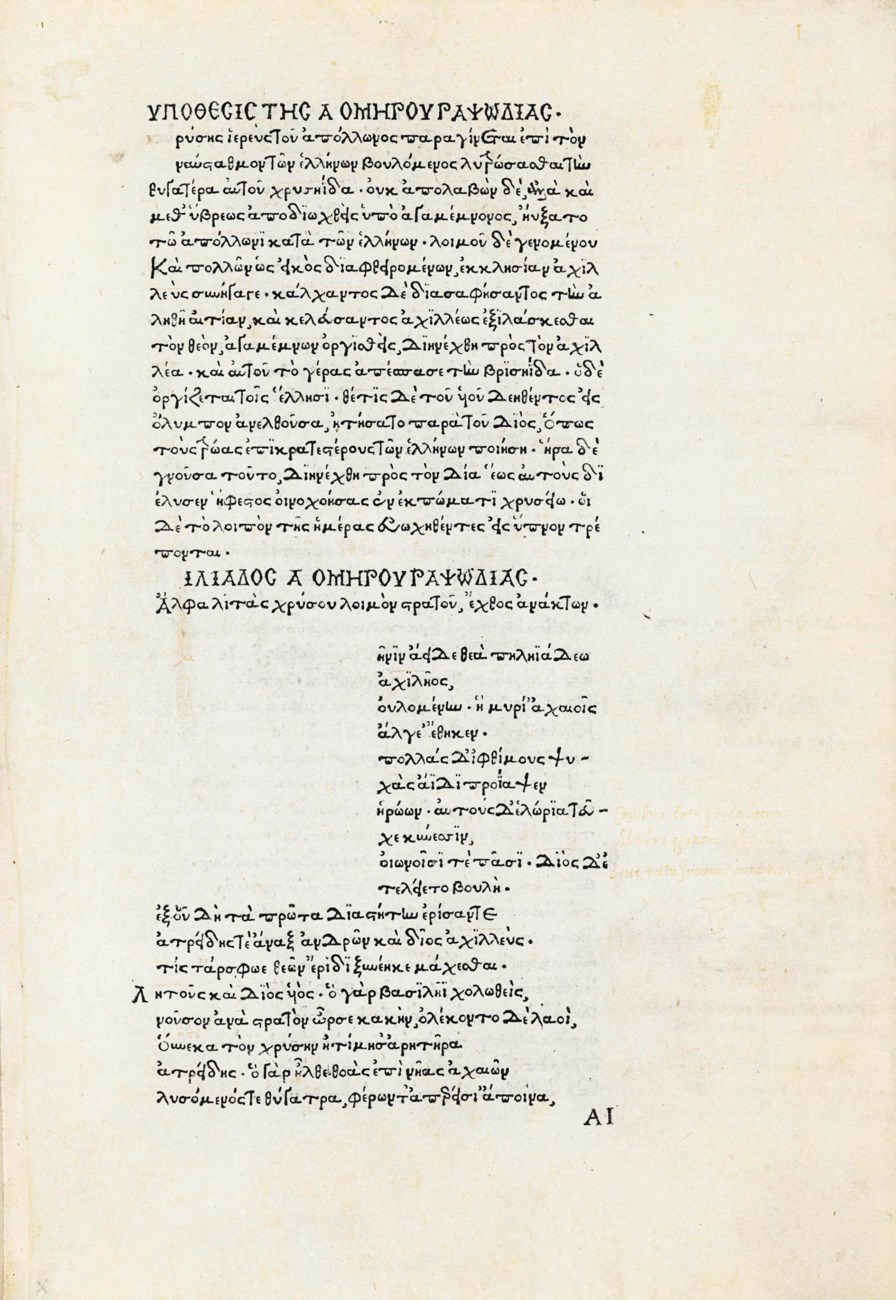 ΥΠΟΘΕΣΙΣ ΤΗΣ Α ΟΜΗΡΟΥ ΡΑΨΩΔΙΑΣ·
ρύσης ἱερεὺς τοῦ ἀπόλλωνος παραγίνεται ἐπὶ τὸν
ναύσταθμον τῶν ἑλλήνων βουλόμενος λυτρώσασθαι τὴν
θυγατέρα αὐτοῦ χρυσηίδα· οὐκ ἀπολαβὼν δὲ, ἀλλὰ καὶ
μεθ᾽ ὕβρεως ἀποδιωχθεὶς ὑπὸ ἀγαμέμνονος, ηὔξατο
τῶ ἀπόλλωνι κατὰ τῶν ἑλλήνων· λοιμοῦ δὲ γενομένου
Καὶ πολλῶν ὡς εἰκὸς διαφθειρομένων, ἐκκλησίαν ἀχιλ
λεὺς συνήγαγε· κάλχαντος δὲ διασαφήσαντος τὴν ἀ
ληθῆ αἰτίαν, καὶ κελεύσαντος ἀχιλλέως ἐξιλάσκεσθαι
τὸν θεὸν, ἀγαμέμνων ὀργισθεὶς, διηνέχθη πρὸς τὸν ἀχιλ
λέα· καὶ αὐτοῦ τὸ γέρας ἀπέσπασε τὴν βρισηίδα· ὁ δὲ
ὀργίζεται τοῖς ἕλλησι· θέτις δὲ τοῦ υἱοῦ δεηθέντος εἰς
ὄλυμπον ἀνελθοῦσα, ἠτήσατο παρὰ τοῦ διὸς, ὅπως
τοὺς τρῶας ἐπικρατεστέρους τῶν ἑλλήνων ποιήση· ἥρα δὲ
γνοῦσα τοῦτο, διηνέχθη πρὸς τὸν δία ἕως αὐτοὺς δι
έλυσεν ἥφεστος οἰνοχοήσας ἐν ἐκπώματι χρυσείω· οἱ
δὲ τὸ λοιπὸν τῆς ἡμέρας εὐωχηθέντες εἰς ὕπνον τρέ
πονται·
ΙΛΙΑΔΟΣ Α ΟΜΗΡΟΥ ΡΑΨΩΔΙΑΣ·
Ἄλφα λιτὰς χρύσου λοιμὸν στρατοῦ, ἔχθος ἀνάκτων·
ῆνιν ἄειδε θεὰ πηληϊάδεω
ἀχιλῆος,
ὀυλομένην· ἣ μυρί᾽ ἀχαιοῖς
ἄλγε᾽ ἔθηκεν·
πολλὰς δ᾽ ἰφθίμους ψυ-
χὰς ἄϊδι προΐαψεν
ἡρώων· αὐτοὺς δ᾽ ἑλώρια τεῦ-
χε κύνεσσιν,
ὀιωνοῖσί τε πᾶσι· διὸς δ᾽ ἐ
τελείετο βουλή·
ἐξ οὗ δὴ τὰ πρῶτα διαστήτην ἐρίσαντε
ἀτρείδης τε ἄναξ ἀνδρῶν καὶ δῖος ἀχιλλεύς·
τίς τάρ σφωε θεῶν ἔριδι ξυνέηκε μάχεσθαι·
Λητοῦς καὶ διὸς υἱός· ὁ γὰρ βασιλῆϊ χολωθεὶς,
νοῦσον ἀνὰ στρατὸν ὦρσε κακὴν, ὀλέκοντο δὲ λαοὶ,
Οὕνεκα τὸν χρύσην ἠτίμησ᾽ ἀρητῆρα
ἀτρείδης· ὁ γὰρ ἦλθε θοὰς ἐπὶ νῆας ἀχαιῶν
λυσόμενός τε θύγατρα, φέρων τ᾽ ἀπερείσι᾽ ἄποινα,
ΑΙ